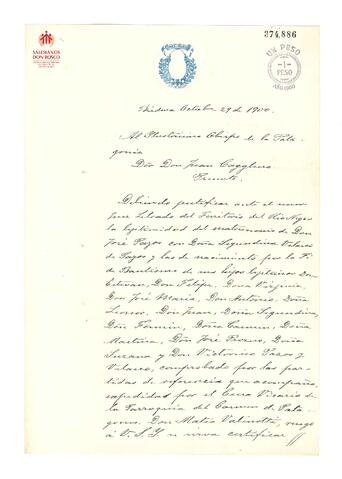 SALESIANOS
DON BOSCO
374,886
UN PESO
-1-
PESO
AÑO 1900
Viedma Octubre 29 de 1900.
Al Ilustrísimo Obispo de la Pata-
gonia
Dor Don Juan Cagliero
Presente.
Debiendo justificar ante el
Juez Letrado del Territorio del Rio Negro
la legitimidad del matrimonio de Don
José Pazos con Doña Segundina Velasco
de Pazos y las de nacimiento por la Fé
de Bautismo de sus hijos legítimos Don
Esteban, Don Felipe, Doña Virginia,
Don José María, Don Antonio, Doña
Leonor, Don Juan, Doña Segundina,
Don Fermin, Doña Carmen, Doña
Martina, Don José, Doña
Susana y Don Victorino Pazos y
Velasco, comprobado por las par-
tidas de referencia que acompaño,
expedidas por el Cura Vicario de
la Parroquia del Carmen de Pata-
gones. Don Mateo Valinotti, ruego
á V.S.Y. se sirva certificar //